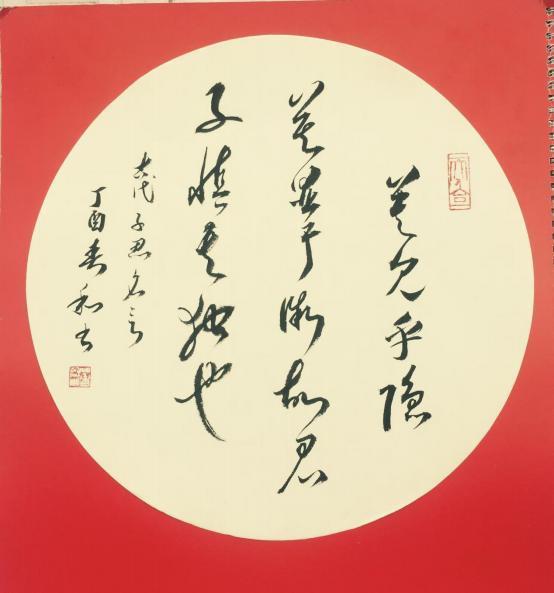 莫见乎隐
莫显乎微故君
子慎其独也
古代子思名言
丁酉春和书